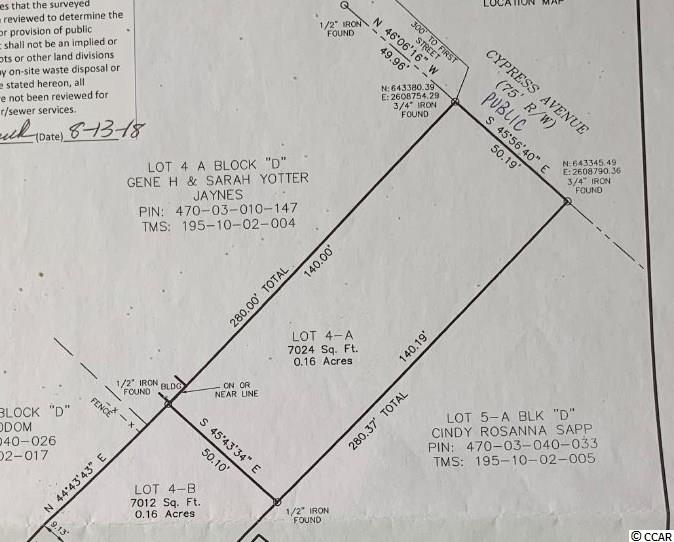 es that the surveyed
reviewed to determine the
or provision of public
shall not be an implied or
ots or other land divisions
y on-site waste disposal or
e stated hereon, all
e not been reviewed for
r/sewer services.
(Date) 8-13-18
LOCATION MAP
1/2" IRON
FOUND
N 46°06'16" W
49.96'
300' TO FIRST
STREET
N: 643380.39
E: 2608754.29
3/4" IRON
FOUND
CYPRESS AVENUE
(75' R/W)
PUBLIC
S 45°56'40" E
50.19'
N: 643345.49
E: 2608790.36
3/4" IRON
FOUND
LOT 4 A BLOCK "D"
GENE H & SARAH YOTTER
JAYNES
PIN: 470-03-010-147
TMS: 195-10-02-004
280.00' TOTAL
140.00'
LOT 4-A
7024 Sq. Ft.
0.16 Acres
140.19'
280.37' TOTAL
1/2" IRON
FOUND
BLDG
ON OR
NEAR LINE
FENCE
x
x
BLOCK "D"
ODOM
040-026
02-017
S 45°43'34" E
50.10'
LOT 5-A BLK "D"
CINDY ROSANNA SAPP
PIN: 470-03-040-033
TMS: 195-10-02-005
N 44°43'43" E
9.13'
LOT 4-B
7012 Sq. Ft.
0.16 Acres
1/2" IRON
FOUND
© CCAR